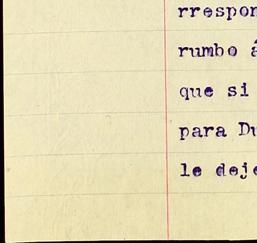 rrespon
rumbo á
que si
para Du
le deje